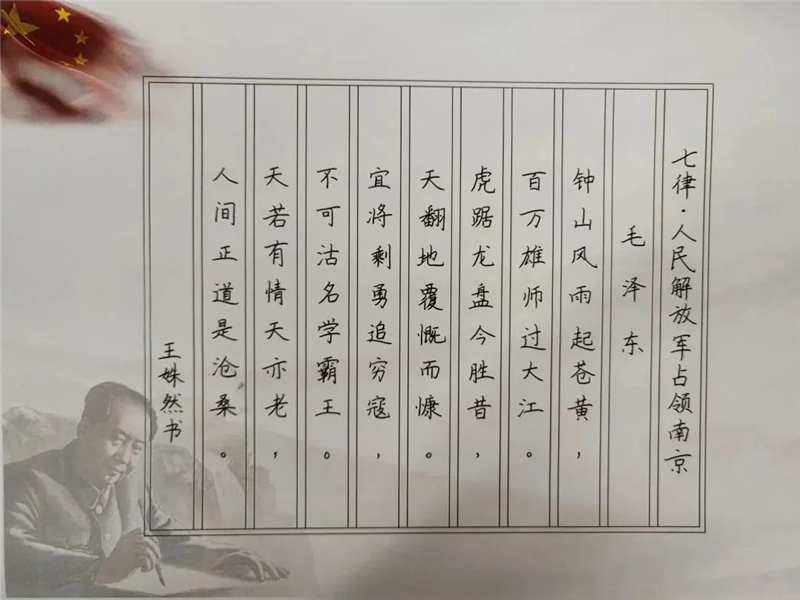 七律·人民解放军占领南京
毛泽东
钟山风雨起苍黄，
百万雄师过大江。
虎踞龙盘今胜昔，
天翻地覆慨而慷。
宜将剩勇追穷寇，
不可沽名学霸王。
天若有情天亦老，
人间正道是沧桑。
王姝然书